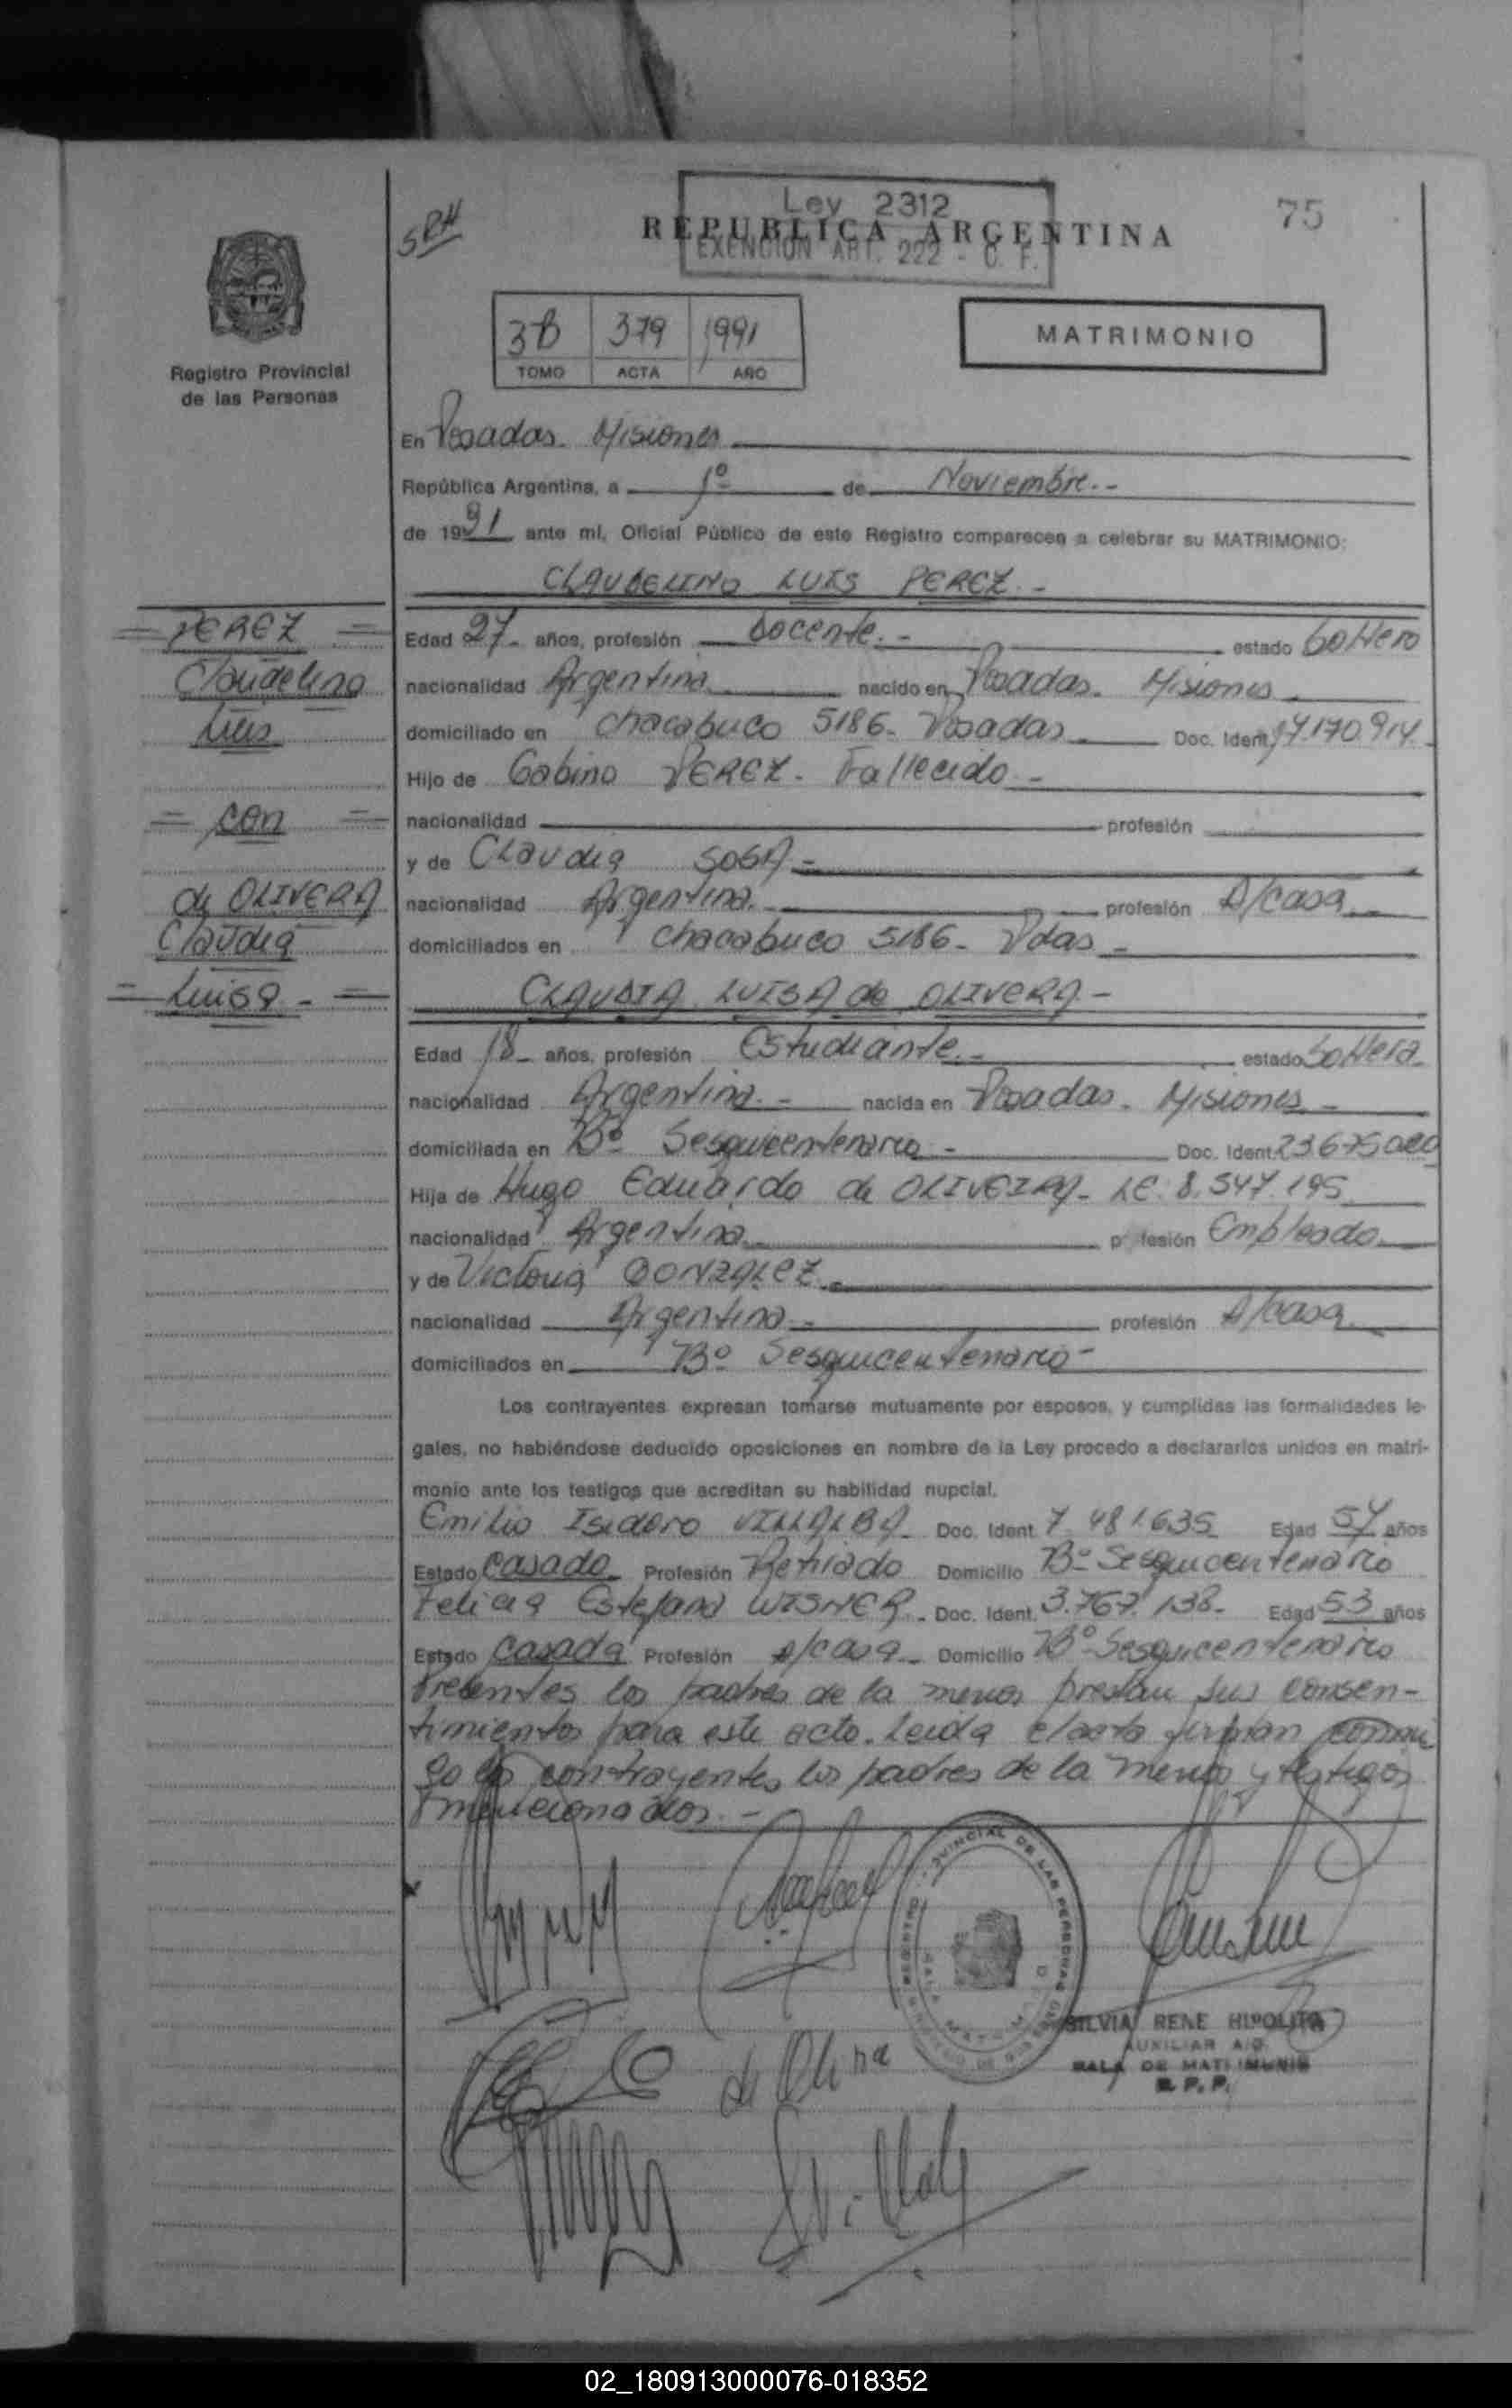 SRH
Ley 2312
REPUBLICA ARGENTINA
EXENCION ART. 222 - C. F.
75
3B 379 1991
TOMO ACTA AÑO
MATRIMONIO
Registro Provincial
de las Personas
En Posadas. Misiones
República Argentina, a 1º de Noviembre.-
de 1991 ante mí, Oficial Público de este Registro comparecen a celebrar su MATRIMONIO:
CLAUDELINO LUIS PEREZ.-
= PEREZ =
Claudelino
Luis
= con =
de OLIVERA
Claudia
= Luisa - =
Edad 27- años, profesión Docente.- estado Soltero
nacionalidad Argentina nacido en Posadas. Misiones
domiciliado en Chacabuco 5186- Posadas Doc. Ident. 17.170.914.
Hijo de Gabino PEREZ- Fallecido-
nacionalidad profesión
y de Claudia SOSA-
nacionalidad Argentina.- profesión A/casa
domiciliados en Chacabuco 5186- Pdas-
CLAUDIA LUISA de OLIVERA-
Edad 18- años, profesión Estudiante.- estado Soltera
nacionalidad Argentina.- nacida en Posadas. Misiones-
domiciliada en Bº Sesquicentenario- Doc. Ident. 23.675.020
Hija de Hugo Eduardo de OLIVEIRA- LE. 8.547.195
nacionalidad Argentina profesión Empleado
y de Victoria GONZALEZ
nacionalidad Argentina- profesión A/casa
domiciliados en Bº Sesquicentenario-
Los contrayentes expresan tomarse mutuamente por esposos, y cumplidas las formalidades le-
gales, no habiéndose deducido oposiciones en nombre de la Ley procedo a declararlos unidos en matri-
monio ante los testigos que acreditan su habilidad nupcial.
Emilio Isidoro VILLALBA Doc. Ident. 7.481.635 Edad 57 años
Estado Casado Profesión Retirado Domicilio Bº Sesquicentenario
Felicia Estefana WISNER- Doc. Ident. 3.767.138- Edad 53 años
Estado Casada Profesión A/casa- Domicilio Bº Sesquicentenario
Presentes los padres de la menor prestan sus consen-
timientos para este acto. Leida el acta firman conmi
go los contrayentes los padres de la menor y testigos
mencionados.-
de Olivera
SILVIA RENE HIPOLITO
AUXILIAR
SALA DE MATRIMONIO
R. P. P.
02_180913000076-018352